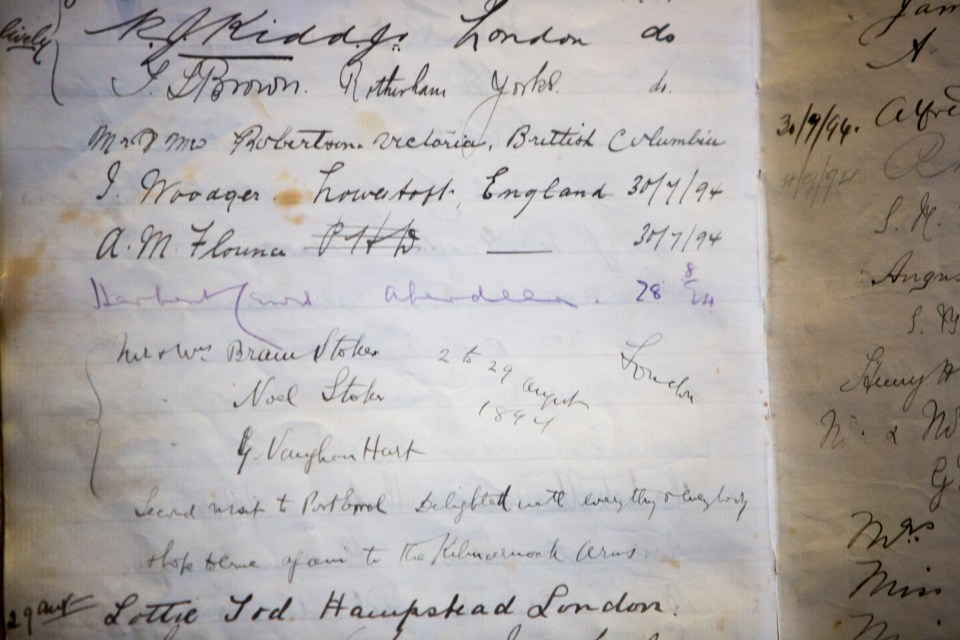 R. J. Kidd Jr. London do
Brown. Rotherham Yorks. do.
Robertson. Victoria, British Columbia
I. Woodger. Lowestoft, England 30/7/94
A. M. Flounce 30/7/94
Herbert Aberdeen. 28 8/94
Mr & Mrs Bram Stoker 2 to 29 August 1894 London
Noel Stoker
G Vaughan Hart
Second visit to Port Errol Delighted with everything & everybody
& hope to come again to the Kilmarnock Arms.
29 Aug Lottie Tod. Hampstead London.
A
30/7/94. Alfre
11/9/94
S. H.
Angus
S. B
Henry H
G
Mrs
Miss